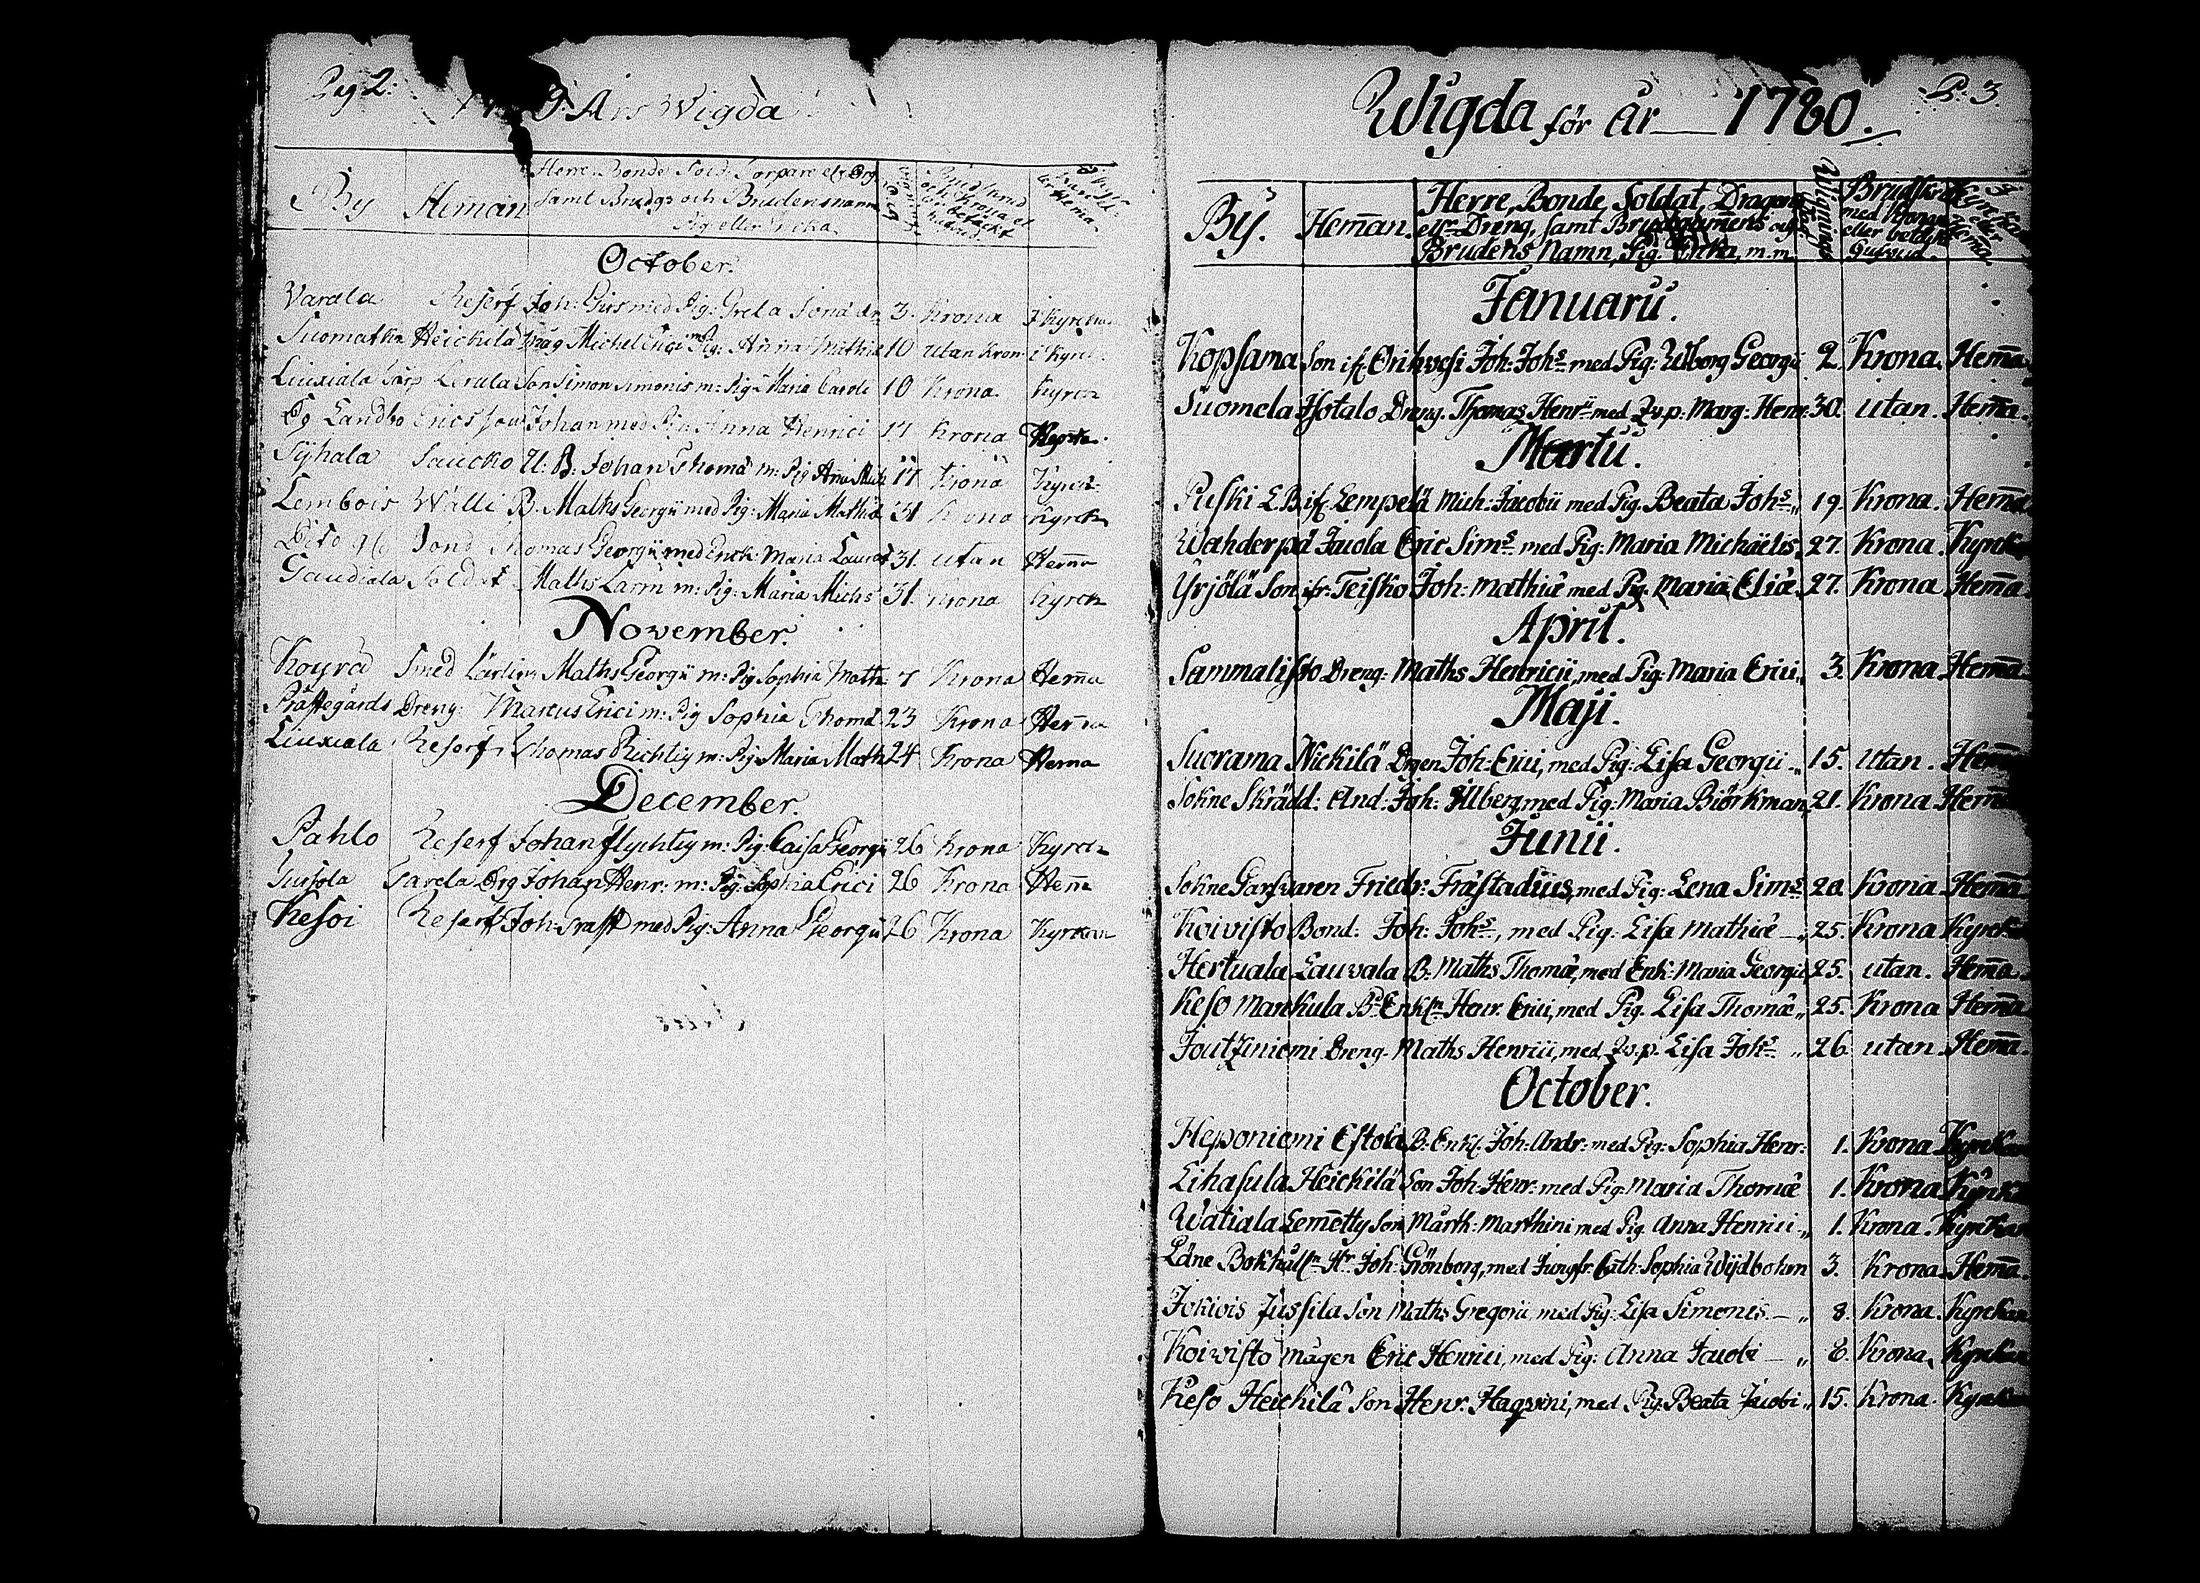 Pag 2:
9. Års Wigda
By Heman Herre Bonde Sold: Torpare elr Drg
Samt Brudgs och Brudens namn
Pig eller Enka
October.
Varala Reserf Joh: med Pig: Greta 3. Krona i Kyrckan
Suomatka Heickilä Måg Michel Erici m Pig: Anna Mathiæ 10 utan Kron i Kyrck
Liuxiala Torp Lerula Son Simon Simonis m: Pig: Maria Caroli 10 Krona Kyrck
Landbo Ericsson Johan med Pig Anna Henrici 17 Krona
Syhala Saucko U: B: Johan Thomæ m: Pig Anna 17 Krona Kyrck
Lembois Walli B. Matths Georgii med Pig: Maria Mathiæ 31 Krona Kyrck
Dito Bond Thomas Georgii med Enck: Maria 31. utan Hema
Gaudiala Soldat Maths Larm m: Pig: Maria Michs 31. Krona Kyrck
November.
Koyrä Smed Lärling Maths Georgii m: Pig Sophia Math 7 Krona Hema
Prästegårds Dreng: Marcus Erici m: Pig Sophia Thomæ 23 Krona Hema
Liuxiala Reserf Thomas Richtig m: Pig Maria Math 24 Krona Hema
December.
Pahlo Reserf Johan Flychtig m: Pig: Caisa Georgii 26 Krona Kyrck
Jussola Tarela Drg Johan Henr: m: Pig: Sophia Erici 26 Krona Hema
Kesoi Reserf Joh: Krafft med Pig: Anna Georgii 26 Krona Kyrckan
P: 3.
Wigda för År 1780.
By. Heman. Herre, Bonde, Soldat, Dragon
elr Dreng, samt Brudgummens och
Brudens Namn, Pig. Enka, m.m.
Wignings dag
Brudstol
med Krona
eller betäkt
hufvud.
I Kyrckan
eller
Hema
Januarii.
Kopsama Son if. Orihvesi Joh: Johs med Pig: Walborg Georgii 2. Krona. Hema
Suomela Hotalo Dreng. Thomas Henrs med Qv.p: Marg: Henr: 30. utan. Hema.
Martii.
Puski L.B. if. Lempelä Mich: Jacobii med Pig. Beata Johs 19. Krona. Hema
Wahderpä Jauola Eric Sims med Pig: Maria Michaëlis 27. Krona Kyrck
Yrjölä Son ifr: Teisko Joh: Mathiæ med Pig. Maria Eliæ. 27. Krona Hema.
April.
Sammalisto Dreng: Maths Henricii, med Pig: Maria Erici 3. Krona Hema
Maji.
Suorama Nickilä Drgen Joh: Erici, med Pig: Lisa Georgii 15. utan. Hema
Sokne Skrädd: And: Joh: Ulberg med Pig: Maria Biörkman 21. Krona Hema
Junii.
Sokne Garfvaren Friedr: Fræstadius, med Pig: Lena Sims 20 Krona Hema
Koivisto Bond. Joh: Johs, med Pig: Lisa Mathiæ 25. Krona Kyrck
Hertuala Lauvala B: Maths Thomæ, med Enk: Maria Georgii 25. utan. Hema
Keso Mankula Bd Enklm Henr. Erici, med Pig. Lisa Thomæ 25. Krona Hema
Joutziniemi Dreng. Maths Henrici, med Qv.p. Lisa Johs 26 utan. Hema.
October.
Heponiemi Estola B: Enkl: Joh: Andr: med Pig: Sophia Henr: 1. Krona Kyrckan
Lihasula Heickilä Son Joh: Henr: med Pig: Maria Thomæ 1. Krona Kyrck
Watiala Lemetty Son Mårth: Marthini med Pig. Anna Henrici 1. Krona. Kyrckan
Läne Bokhållrn Hr. Joh: Grönborg, med Jungfr Cath: Sophia Wijdbohm 3. Krona. Hema.
Jokiois Jussila Son Maths Gregorii, med Pig: Lisa Simonis 8. Krona. Kyrckan
Koivisto Mågen Eric Henrici, med Pig: Anna Jacobi 8. Krona. Kyrckan
Keso Heickilä Son Henr. Haqvini, med Pig. Beata Jacobi 15. Krona. Kyrckan